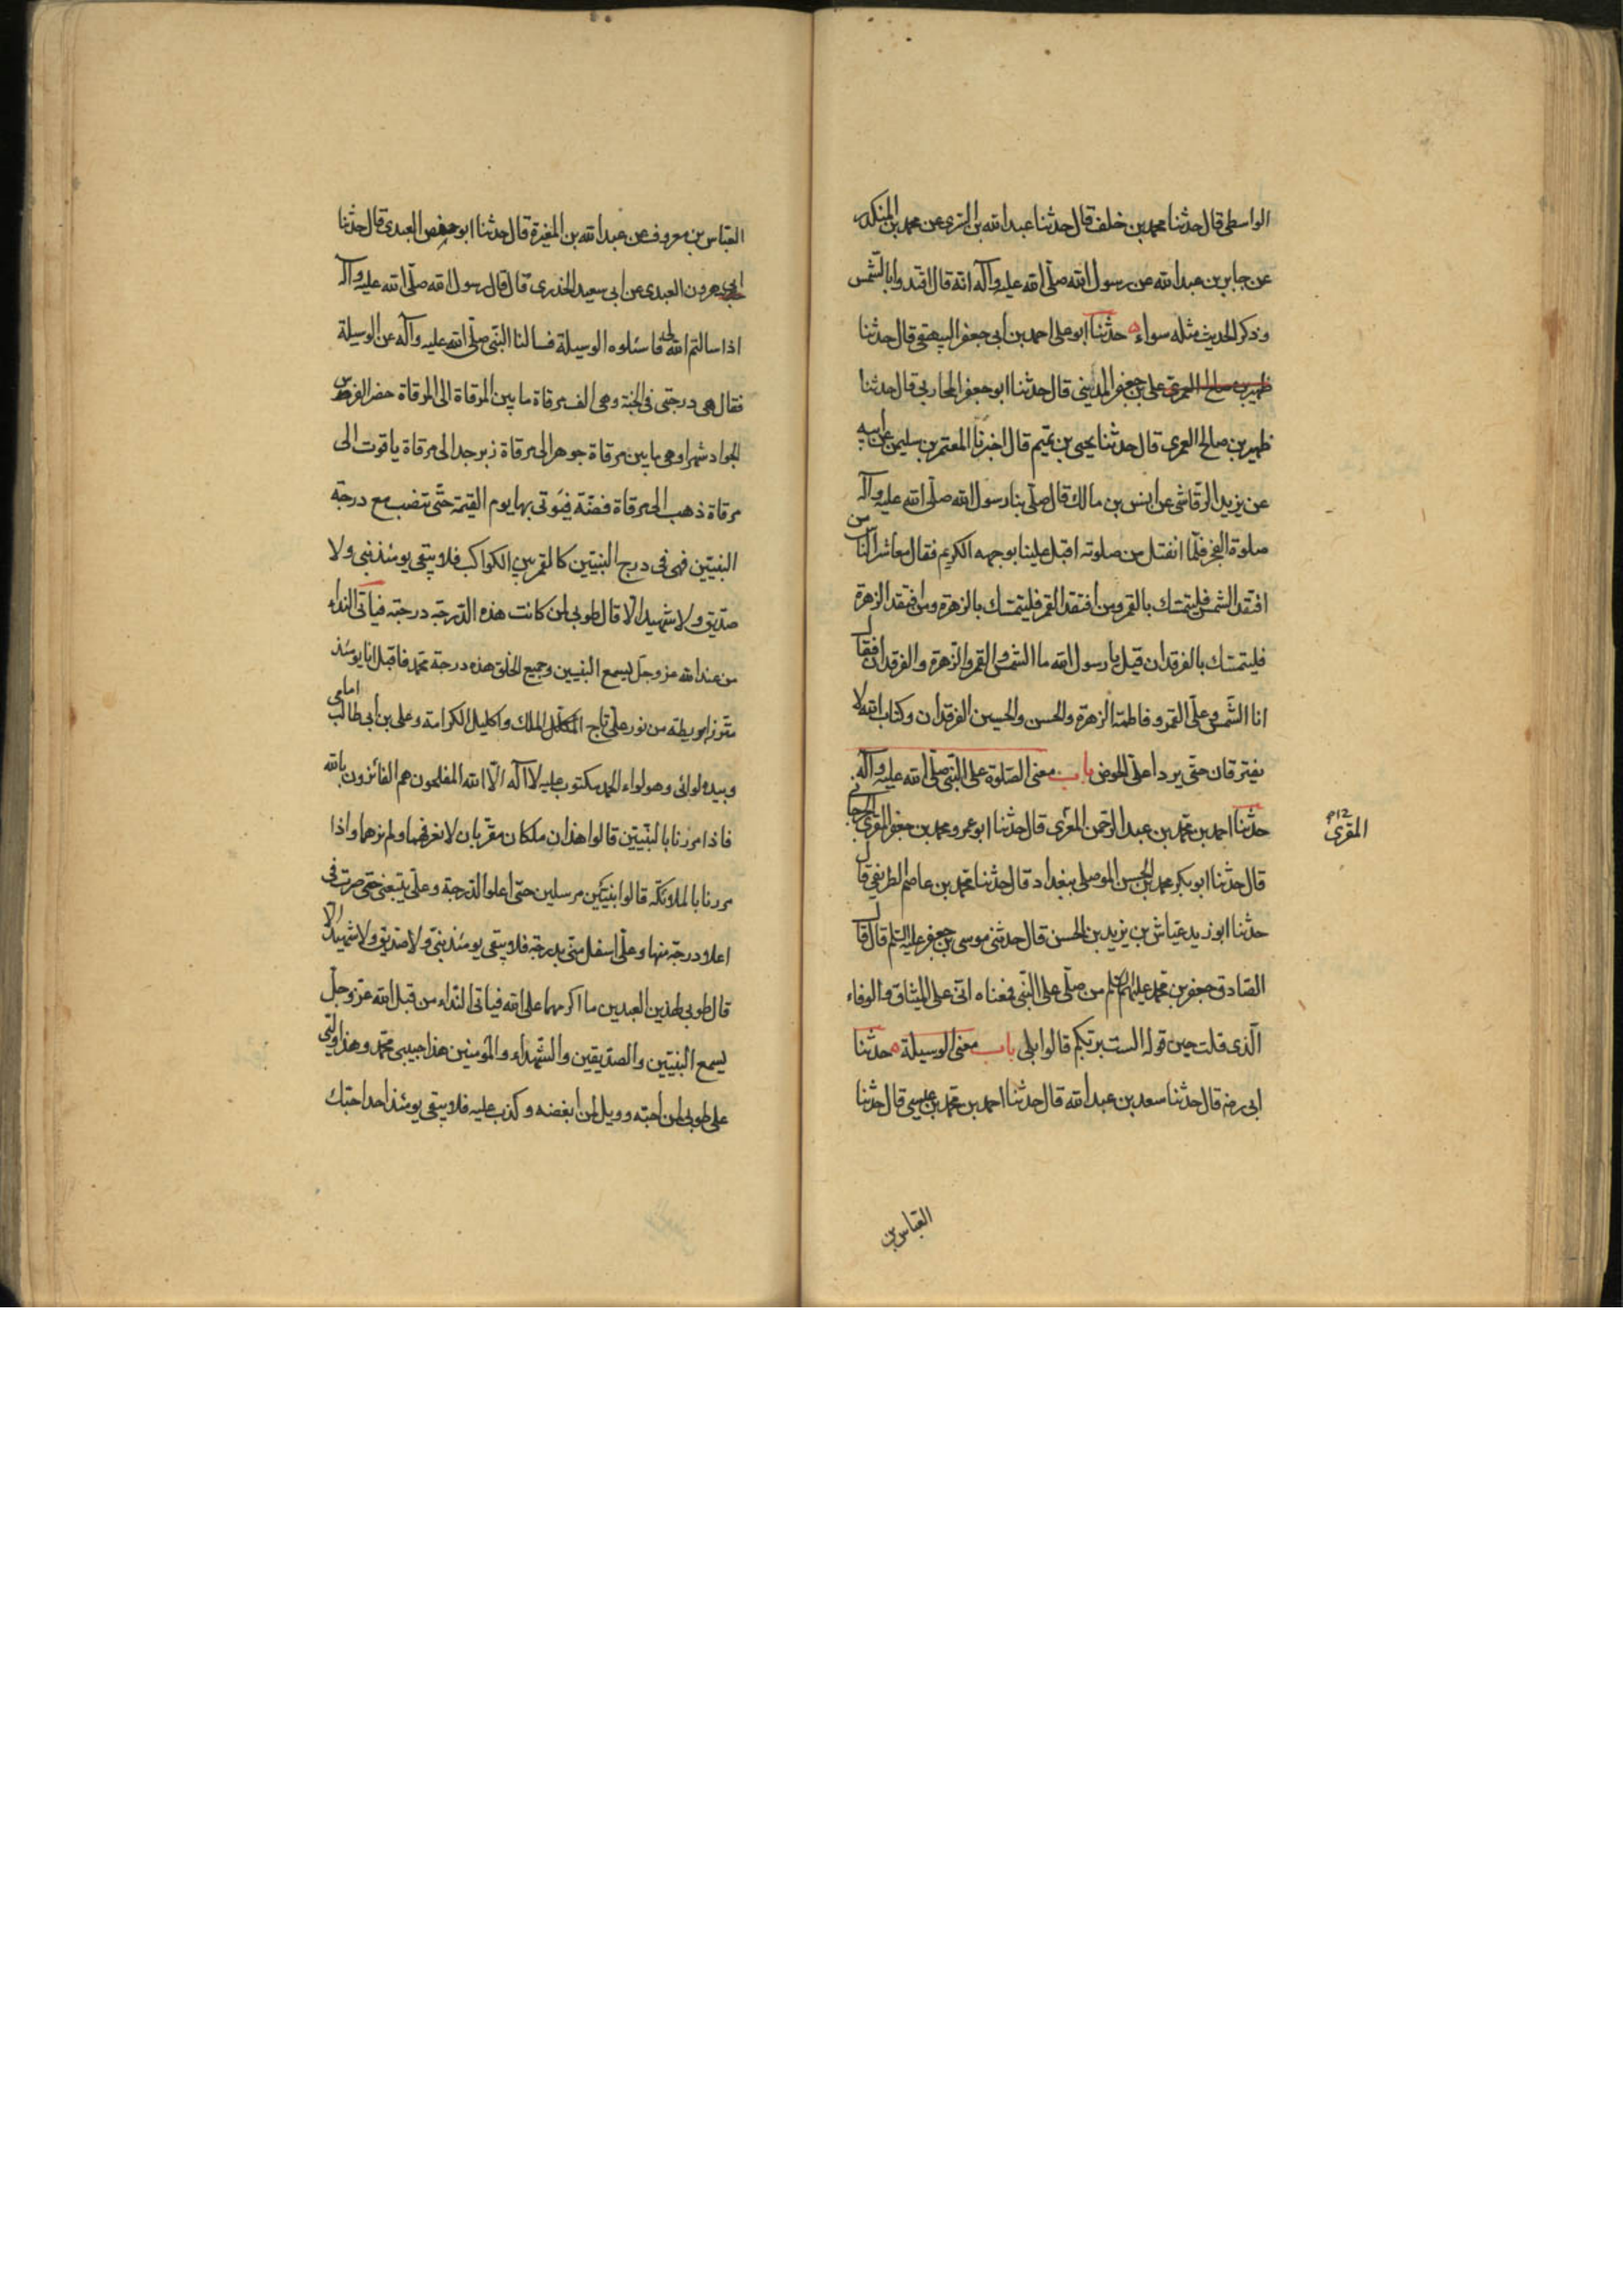 الواسطى قال حدثنا محمد بن خلف قال حدثنا عبد الله بن السرى عن محمد بن المنكدر
عن جابر بن عبد الله عن رسول الله صلى الله عليه وآله انه قال اقتدوا بالشمس
وذكر الحديث مثله سواء حدثنا ابو على احمد بن ابى جعفر البيهقى قال حدثنا
ظهير بن صالح العمرى على بن جعفر المدينى قال حدثنا ابو جعفر المحاربى قال حدثنا
ظهير بن صالح العمرى قال حدثنا يحيى بن تميم قال اخبرنا المعتمر بن سليمن عن ابيه
عن يزيد الرقاشى عن انس بن مالك قال صلى بنا رسول الله صلى الله عليه وآله
صلوة الفجر فلما انفتل من صلوته اقبل علينا بوجهه الكريم فقال معاشر الناس من
افتقد الشمس فليتمسك بالقمر ومن افتقد القمر فليتمسك بالزهرة ومن افتقد الزهرة
فليتمسك بالفرقدان قيل يا رسول الله ما الشمس والقمر والزهرة والفرقدان فقال
انا الشمس وعلى القمر وفاطمة الزهرة والحسن والحسين الفرقدان وكتاب الله لا
يفترقان حتى يردا على الحوض باب معنى الصلوة على النبى صلى الله عليه وآله
حدثنا احمد بن محمد بن عبد الرحمن المقرى قال حدثنا ابو عمرو محمد بن جعفر المقرى الجرجانى
المقرى
قال حدثنا ابو بكر محمد بن الحسن الموصلى ببغداد قال حدثنا محمد بن عاصم الطريفى قال
حدثنا ابو زيد عياش بن يزيد بن الحسن قال حدثنى موسى بن جعفر عليه السلم قال قال
الصادق جعفر بن محمد عليهما السلم من صلى على النبى فمعناه انى على الميثاق والوفاء
الذى قلت حين قوله الست بربكم قالوا بلى باب معنى الوسيلة حدثنا
ابى رضه قال حدثنا سعد بن عبد الله قال حدثنا احمد بن محمد بن عيسى قال حدثنا
العباس بن
العباس بن معروف عن عبد الله بن المغيرة قال حدثنا ابو حفص العبدى قال حدثنا
ابى هرون العبدى عن ابى سعيد الخدرى قال قال رسول الله صلى الله عليه وآله
اذا سالتم الله لى فاسئلوه الوسيلة فسالنا النبى صلى الله عليه وآله عن الوسيلة
فقال هى درجتى فى الجنة وهى الف مرقاة ما بين المرقاة الى المرقاة حضر الفرس
الجواد شهرا وهى ما بين مرقاة جوهر الى مرقاة زبرجد الى مرقاة ياقوت الى
مرقاة ذهب الى مرقاة فضة فيؤتى بها يوم القيمة حتى تنصب مع درجة
النبيين فهى فى درج النبيين كالقمر بين الكواكب فلا يبقى يومئذ نبى ولا
صديق ولا شهيد الا قال طوبى لمن كانت هذه الدرجة درجته فياتى النداء
من عند الله عز وجل يسمع النبيين وجميع الخلق هذه درجة محمد فاقبل انا يومئذ
متوزرا بريطة من نور على تاج الملك واكليل الكرامة وعلى بن ابى طالب امامى
وبيده لوائى وهو لواء الحمد مكتوب عليه لا اله الا الله المفلحون هم الفائزون بالله
فاذا مررنا بالنبيين قالوا هذان ملكان مقربان لا نعرفهما ولم نرهما واذا
مررنا بالملائكة قالوا نبيين مرسلين حتى اعلو الدرجة وعلى يتبعنى حتى صرت فى
اعلا درجة منها وعلى اسفل منى بدرجة فلا يبقى يومئذ نبى ولا صديق ولا شهيد الا
قال طوبى لهذين العبدين ما اكرمهما على الله فياتى النداء من قبل الله عز وجل
يسمع النبيين والصديقين والشهداء والمؤمنين هذا حبيبى محمد وهذا وليى
على طوبى لمن احبه وويل لمن ابغضه وكذب عليه فلا يبقى يومئذ احد احبك